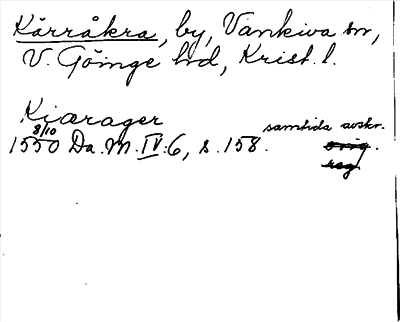 Kärråkra, by, Vankiva sn,
V. Göinge hd, Krist. l.
Kiærager
1550 8/10 Da. M. IV:6, s. 158. samtida avskr.
orig.
reg